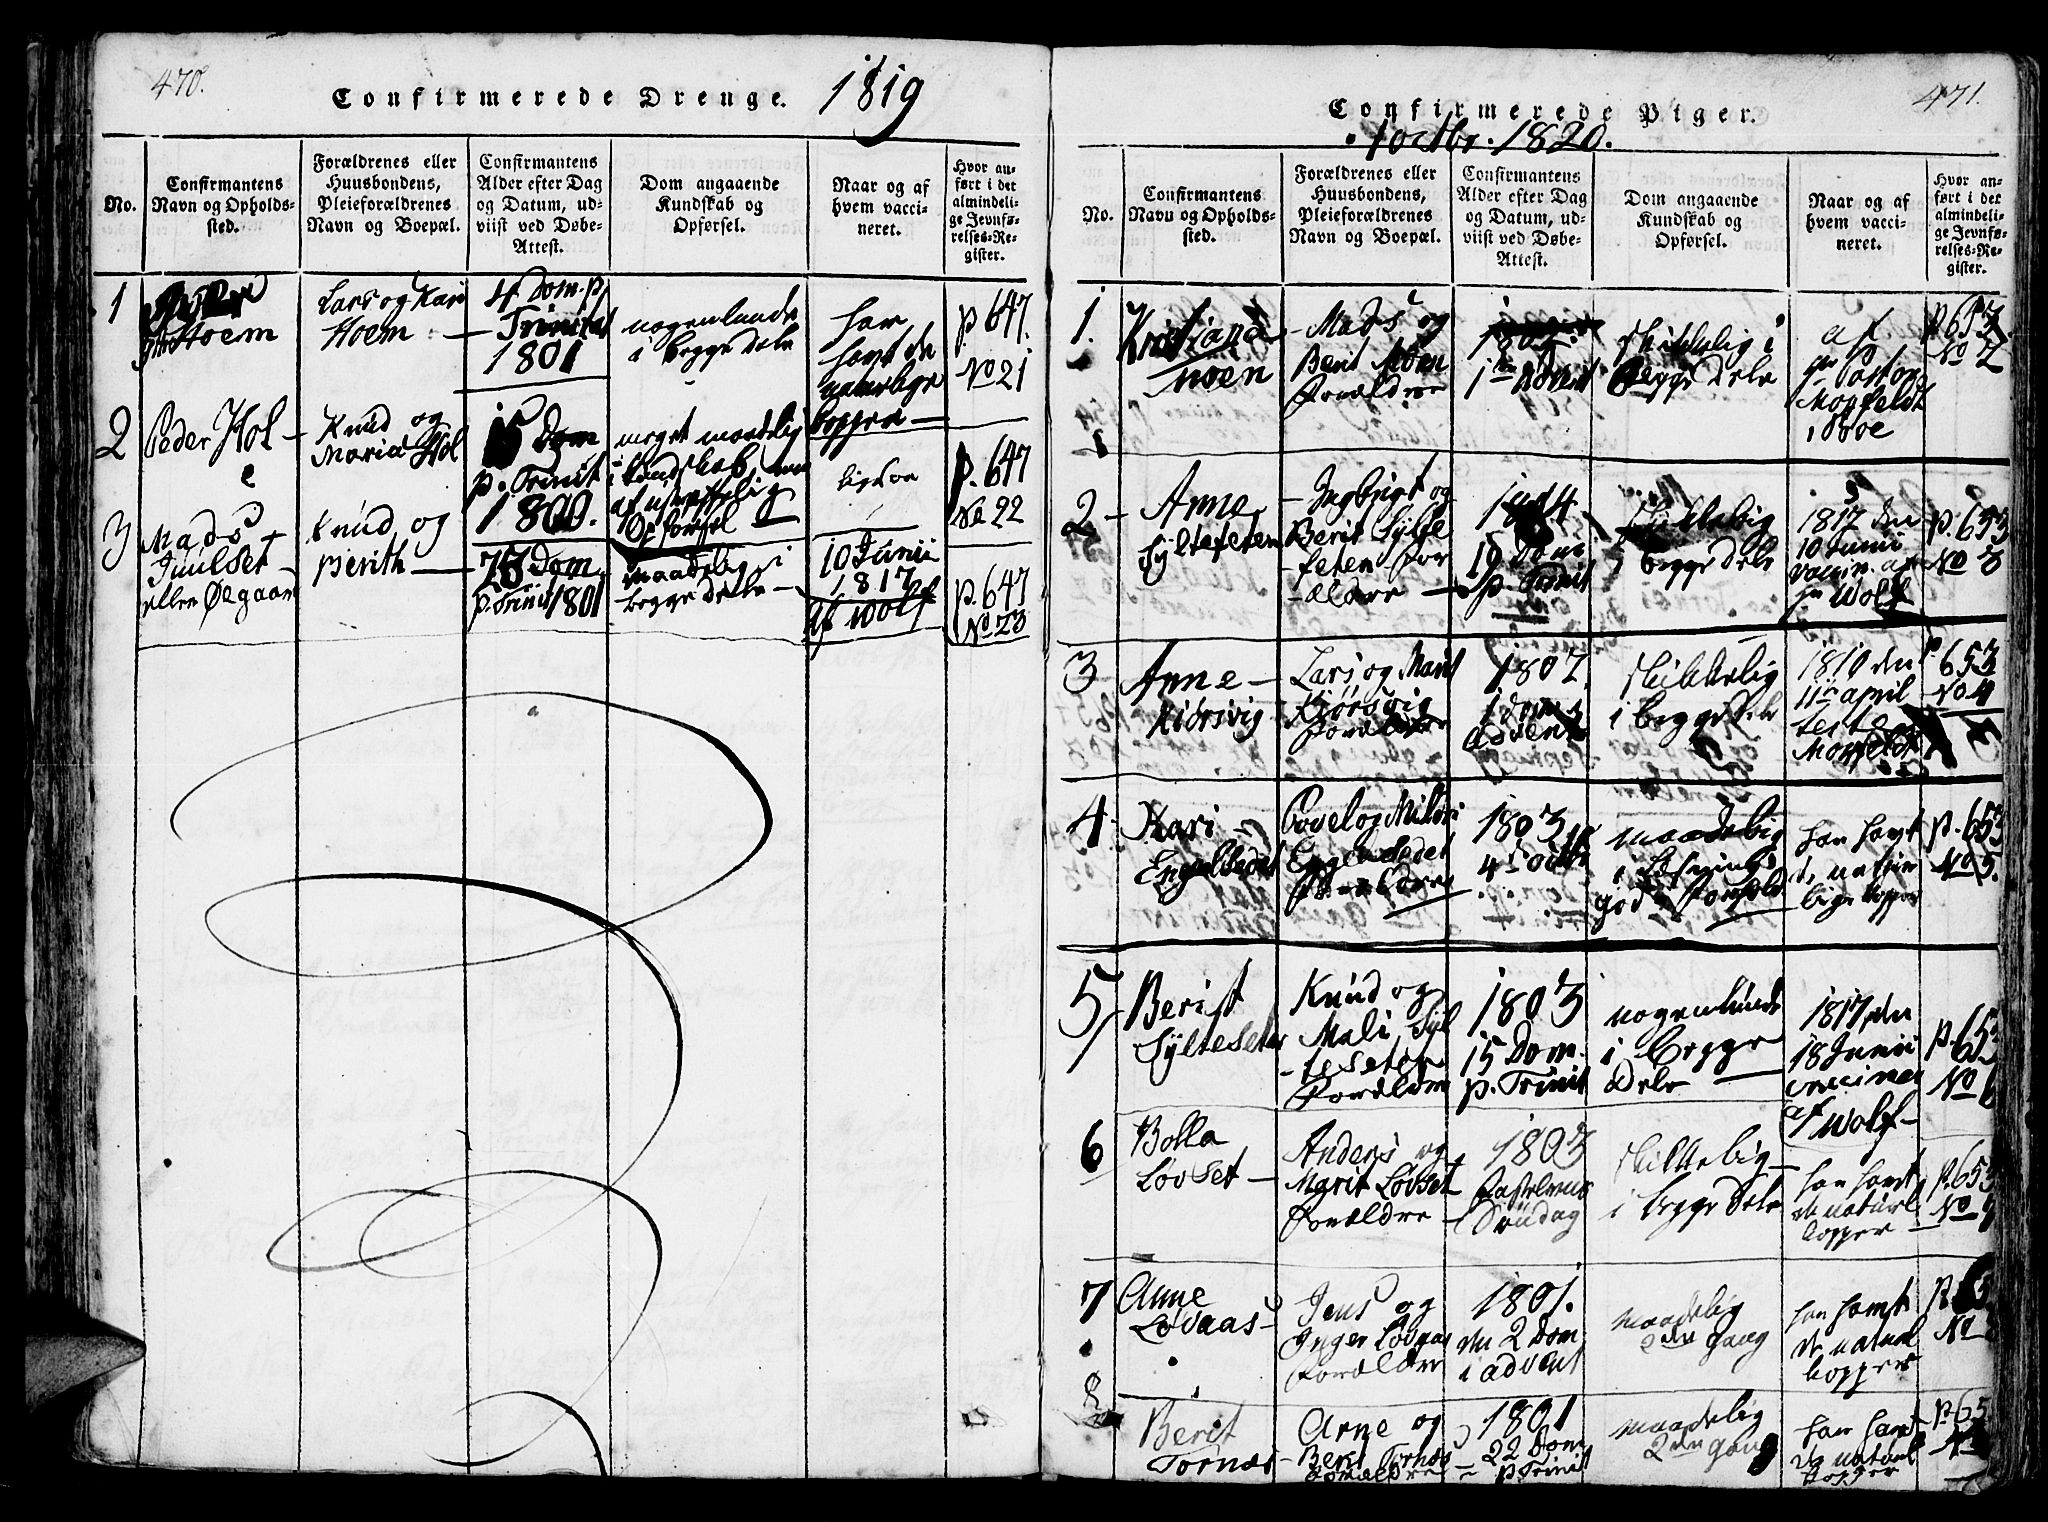 470.
Confirmerede Drenge. 1819
No.
Confirmantens
Navn og Opholds-
sted.
Forældrenes eller
Huusbondens,
Pleieforældrenes
Navn og Boepæl.
Confirmantens
Alder efter Dag
og Datum, ud-
viist ved Døbe-
Attest.
Dom angaaende
Kundskab og
Opførsel.
Naar og af
hvem vacci-
neret.
Hvor an-
ført i det
almindeli-
ge Jevnfø-
relses-Re-
gister.
1
Hoem
Lars og Kari
Hoem
4 Dom. p.
Trinitat
1801
nogenlunde
i begge dele
har
havt de
naturlige
kopper
p. 647.
No 21
2
Peder Hol
Knud og
Maria Hol
15 Dom
p. Trinit
1800.
meget maadelig
i kundskab, men
af ustraffelig
Opførsel
ligesaa
p. 647
No 22
3
Mads
Juulset
eller Øegaar
Knud og
Berith
Dom
p. Trinit 1801
maadelig i
begge dele
10 Junii
1817
af Wolf
p. 647
No 23
471.
Confirmerede Piger.
1 octbr. 1820.
No.
Confirmantens
Navn og Opholds-
sted.
Forældrenes eller
Huusbondens,
Pleieforældrenes
Navn og Boepæl.
Confirmantens
Alder efter Dag
og Datum, ud-
viist ved Døbe-
Attest.
Dom angaaende
Kundskab og
Opførsel.
Naar og af
hvem vacci-
neret.
Hvor an-
ført i det
almindeli-
ge Jevnfø-
relses-Re-
gister.
1.
Kristiana
moen
Mads og
Berit Moen
Forældre
1802.
1ste Advent
skikkelig i
Begge Dele
af
Pastor
p. 653
No 2
2
Anne
Sylteseten
Ingbrigt og
Berit Sylte
seten For
ældre
1804
19 Dom
p. Trinit
skikkelig
i begge dele
1817 den
10 Junii
vaccin. af
Hr Wolf
p. 653
No 3
3
Anne
Kiørsvig
Lars og Marit
Kjørsvig
Forældre
1802.
1 dom.
advent
skikkelig
i begge Dele
1810 den
11te april
p 653
No 4
4
Kari
Engelsedet
Povel og
Engelsedet
Forældre
1803
4 octb
maadelig
i Læsning
god
har havt
de natur
lige kopper
p. 653
No 5.
5
Berit
Sylteseter
Knud og
Mali Syl
teseter
Forældre
1803
15 Dom.
p. Trinit
nogenlunde
i begge
Dele
1817 den
18 Junii
vaccineret
af Wolf
p. 653
No 6
6
Bolla
Løvset
Anders og
Marit Løvset
Forældre
1803
Fastelavns
Søndag
skikkelig
i begge Dele
har havt
de naturl
kopper
p. 653
No
7
Anne
Løvaas
Jens og
Inger Løvaas
Forældre
1801.
den 2 Dom
i advent
maadelig
2den gang
har havt
de naturl
kopper
No
8
Berit
Tornæs
Arne og
Berit Tornæs
Forældre
1801
22 Dom
p Trinit
maadelig
2den gang
har havt
de naturl
kopper
p. 65
No